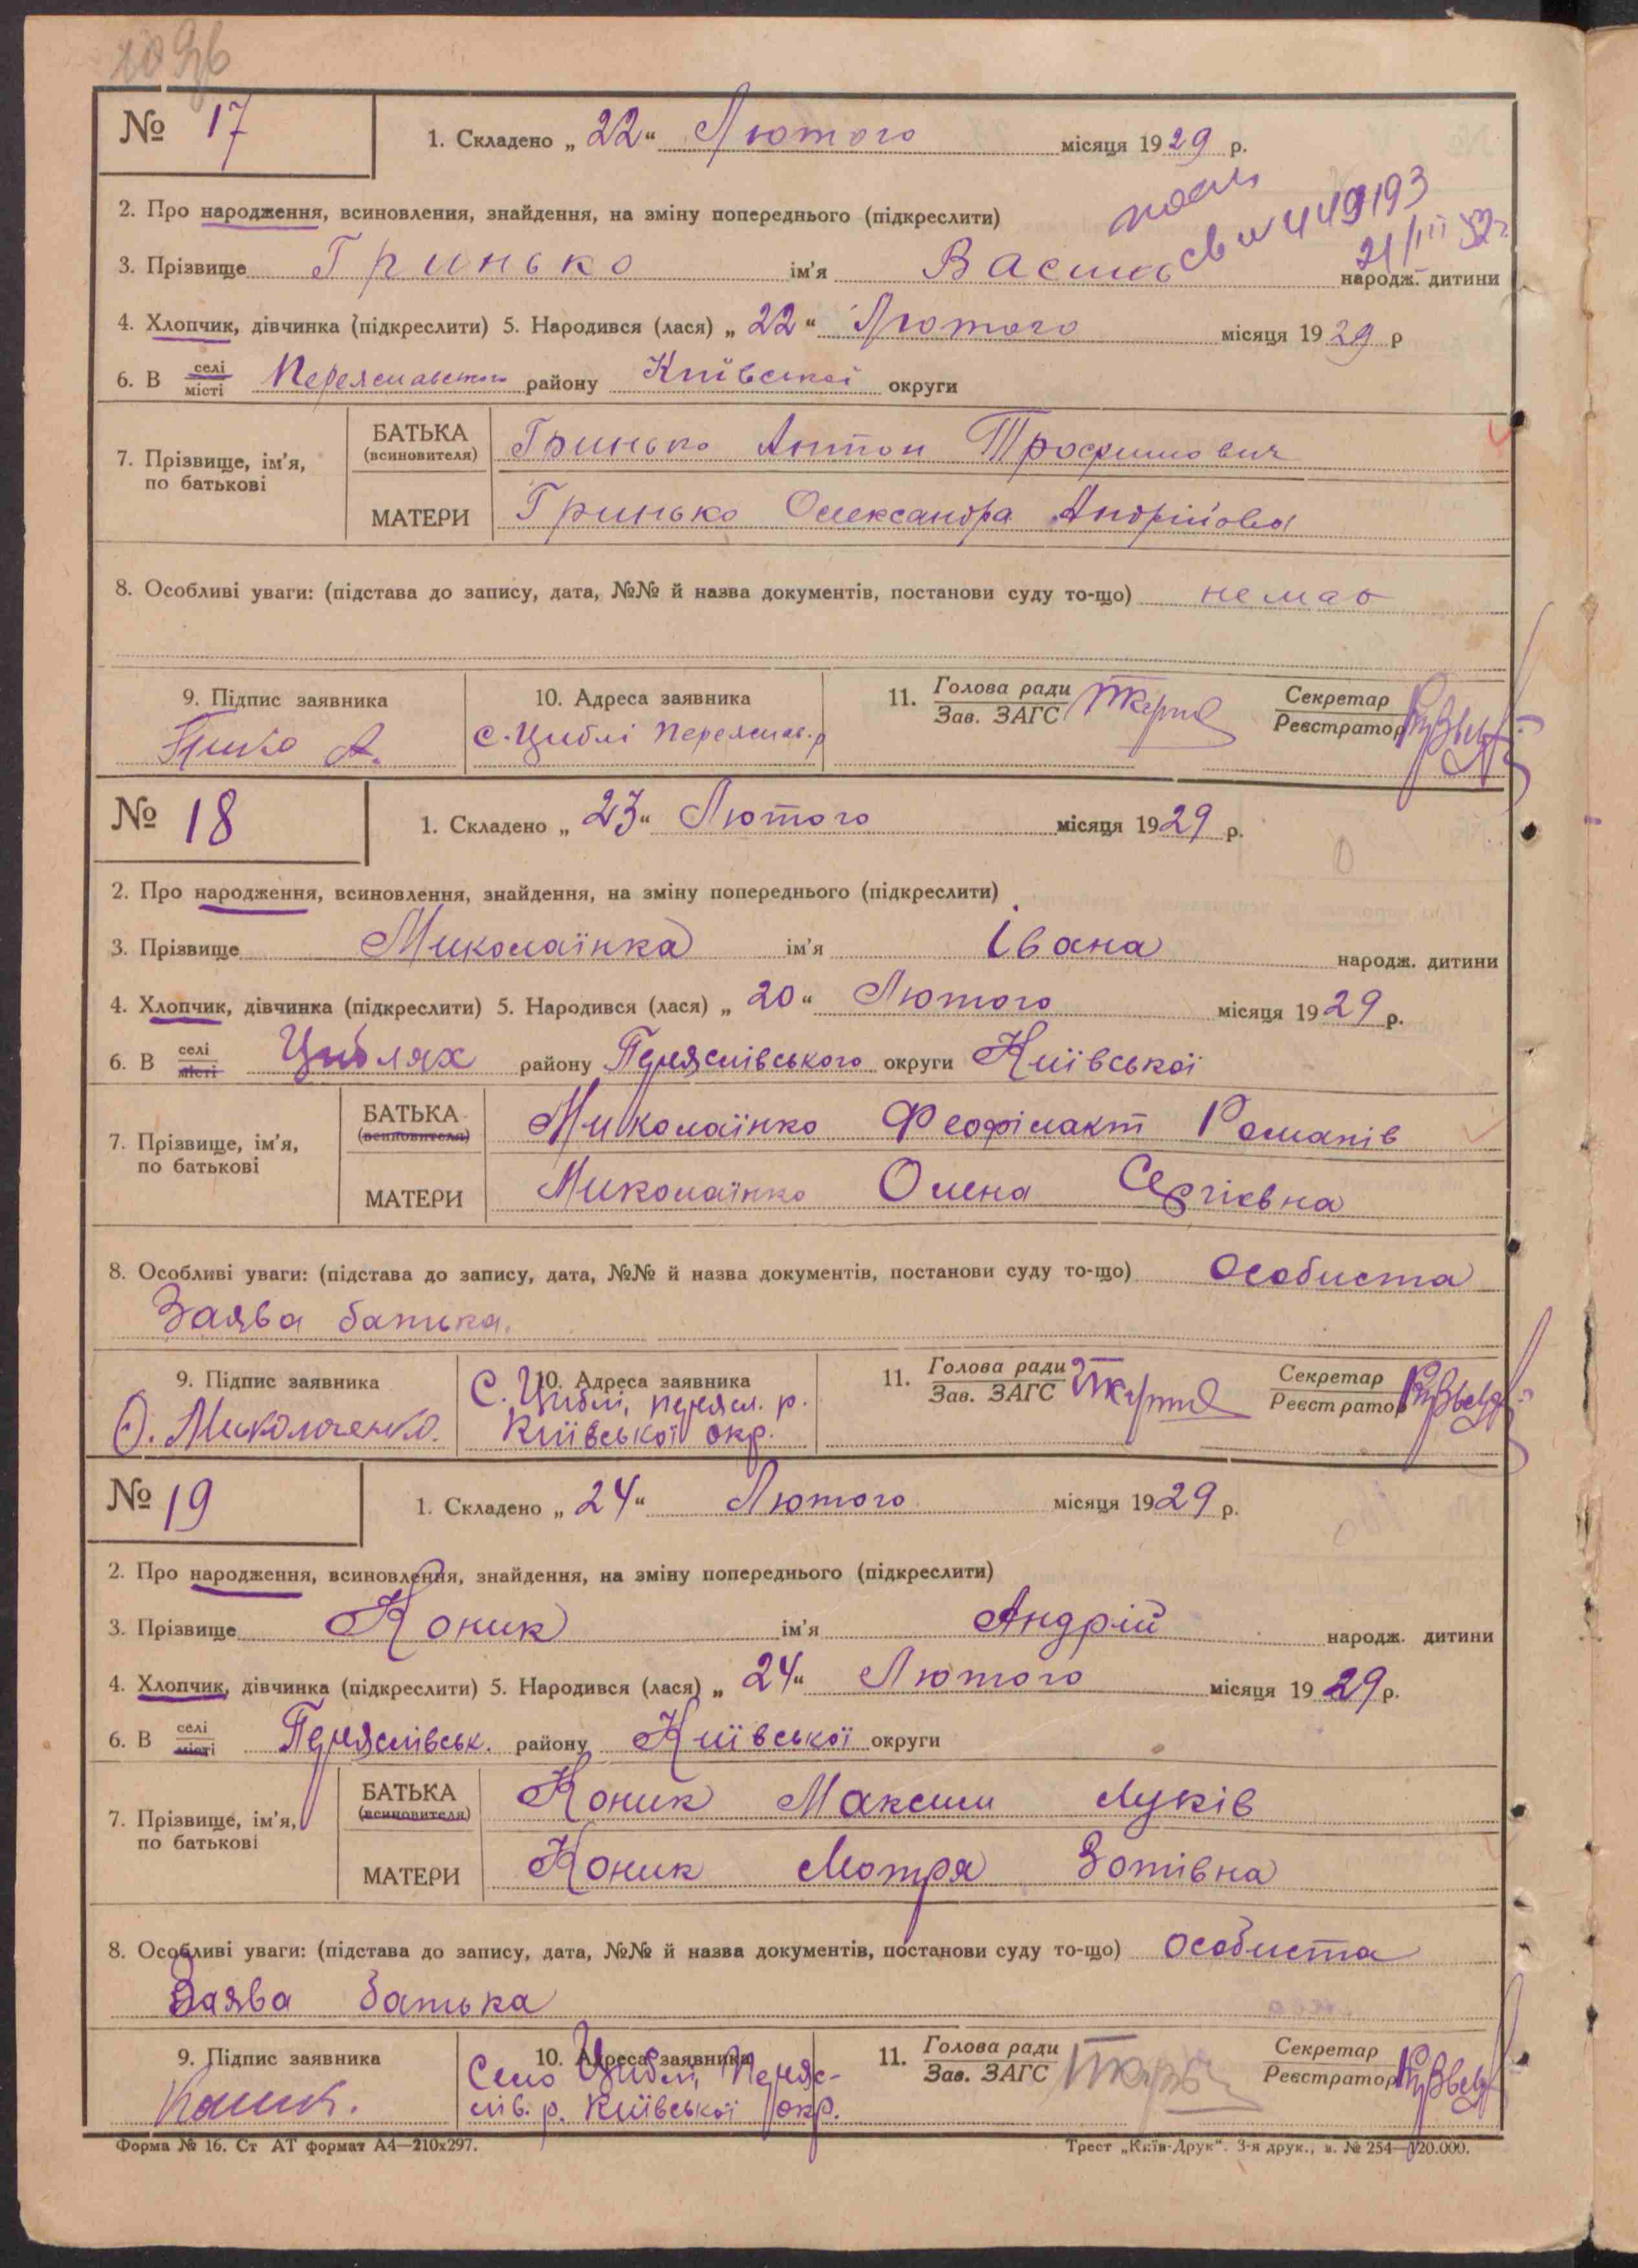 № 17
1. Складено „ 22 “ Лютого місяця 1929 р.
2. Про народження, всиновлення, знайдення, на зміну попереднього (підкреслити)
св № 449193
21/III 52г.
3. Прізвище Гринько ім'я Василь народж. дитини
4. Хлопчик, дівчинка (підкреслити) 5. Народився (лася) „ 22 “ Лютого місяця 1929 р
6. В селі місті Переяславського району Київської округи
7. Прізвище, ім'я, по батькові
БАТЬКА (всиновителя) Гринько Антон Трофимович
МАТЕРИ Гринько Олександра Андрійовна
8. Особливі уваги: (підстава до запису, дата, №№ й назва документів, постанови суду то-що) немає
9. Підпис заявника
10. Адреса заявника
с. Циблі Переяслав. р
11. Голова ради Зав. ЗАГС
Секретар Реєстратор
№ 18
1. Складено „ 23 “ Лютого місяця 1929 р.
2. Про народження, всиновлення, знайдення, на зміну попереднього (підкреслити)
3. Прізвище Миколаїнка ім'я Івана народж. дитини
4. Хлопчик, дівчинка (підкреслити) 5. Народився (лася) „ 20 “ Лютого місяця 1929 р.
6. В селі місті Циблях району Переяслівського округи Київської
7. Прізвище, ім'я, по батькові
БАТЬКА (всиновителя) Миколаїнко Феофілакт Романів
МАТЕРИ Миколаїнко Олена Сергієвна
8. Особливі уваги: (підстава до запису, дата, №№ й назва документів, постанови суду то-що) Особиста
Заява батька.
9. Підпис заявника
10. Адреса заявника
С. Циблі, переясл. р.
Київської окр.
11. Голова ради Зав. ЗАГС
Секретар Реєстратор
№ 19
1. Складено „ 24 “ Лютого місяця 1929 р.
2. Про народження, всиновлення, знайдення, на зміну попереднього (підкреслити)
3. Прізвище Коник ім'я Андрій народж. дитини
4. Хлопчик, дівчинка (підкреслити) 5. Народився (лася) „ 24 “ Лютого місяця 1929 р.
6. В селі місті Переяслівськ. району Київської округи
7. Прізвище, ім'я, по батькові
БАТЬКА (всиновителя) Коник Максим Луків
МАТЕРИ Коник Мотря Зотівна
8. Особливі уваги: (підстава до запису, дата, №№ й назва документів, постанови суду то-що) Особиста
Заява батька
9. Підпис заявника
Коник.
10. Адреса заявника
Село Циблі, Переяс-
лів. р. Київської окр.
11. Голова ради Зав. ЗАГС
Секретар Реєстратор
Форма № 16. Ст АТ формат А4—210х297.
Трест „Київ-Друк“. 3-я друк., з. № 254—120.000.